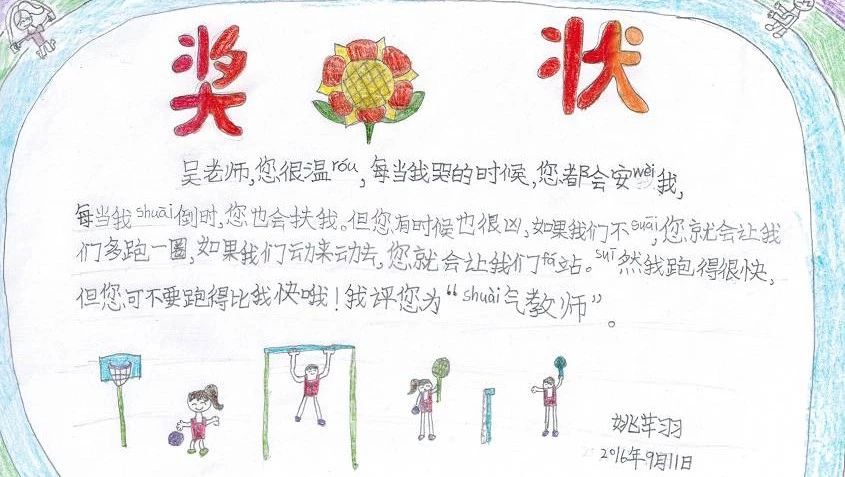 奖 状
吴老师,您很温róu,每当我哭的时候,您都会安wèi我,
每当我shuāi倒时,您也会扶我。但您有时候也很凶,如果我们不suāi,您就会让我
们多跑一圈,如果我们动来动去,您就会让我们fá站。suī然我跑得很快,
但您可不要跑得比我快哦!我评您为“shuài气教师”。
姚芊羽
2016年9月11日